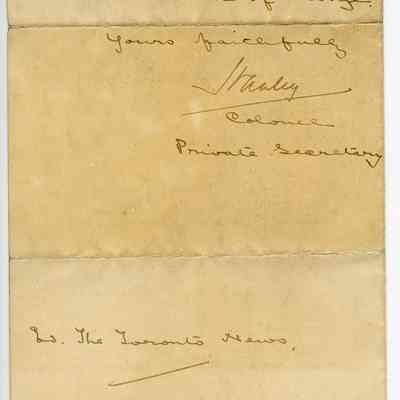 Yours faithfully
Stanley
Colonel
Private Secretary
Ed. The Toronto News,